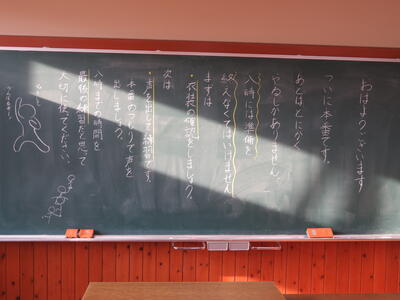 おはようございます
ついに本番です。
あとはとにかく、
やるしかありません。
八時には準備を
終えなくてはいけません。
まずは
・衣装の確認をしましょう。
次は
・声を出して練習です。
本番のつもりで声を
出しましょう。
八時までの時間を
最後の練習だと思って
大切に使ってください。